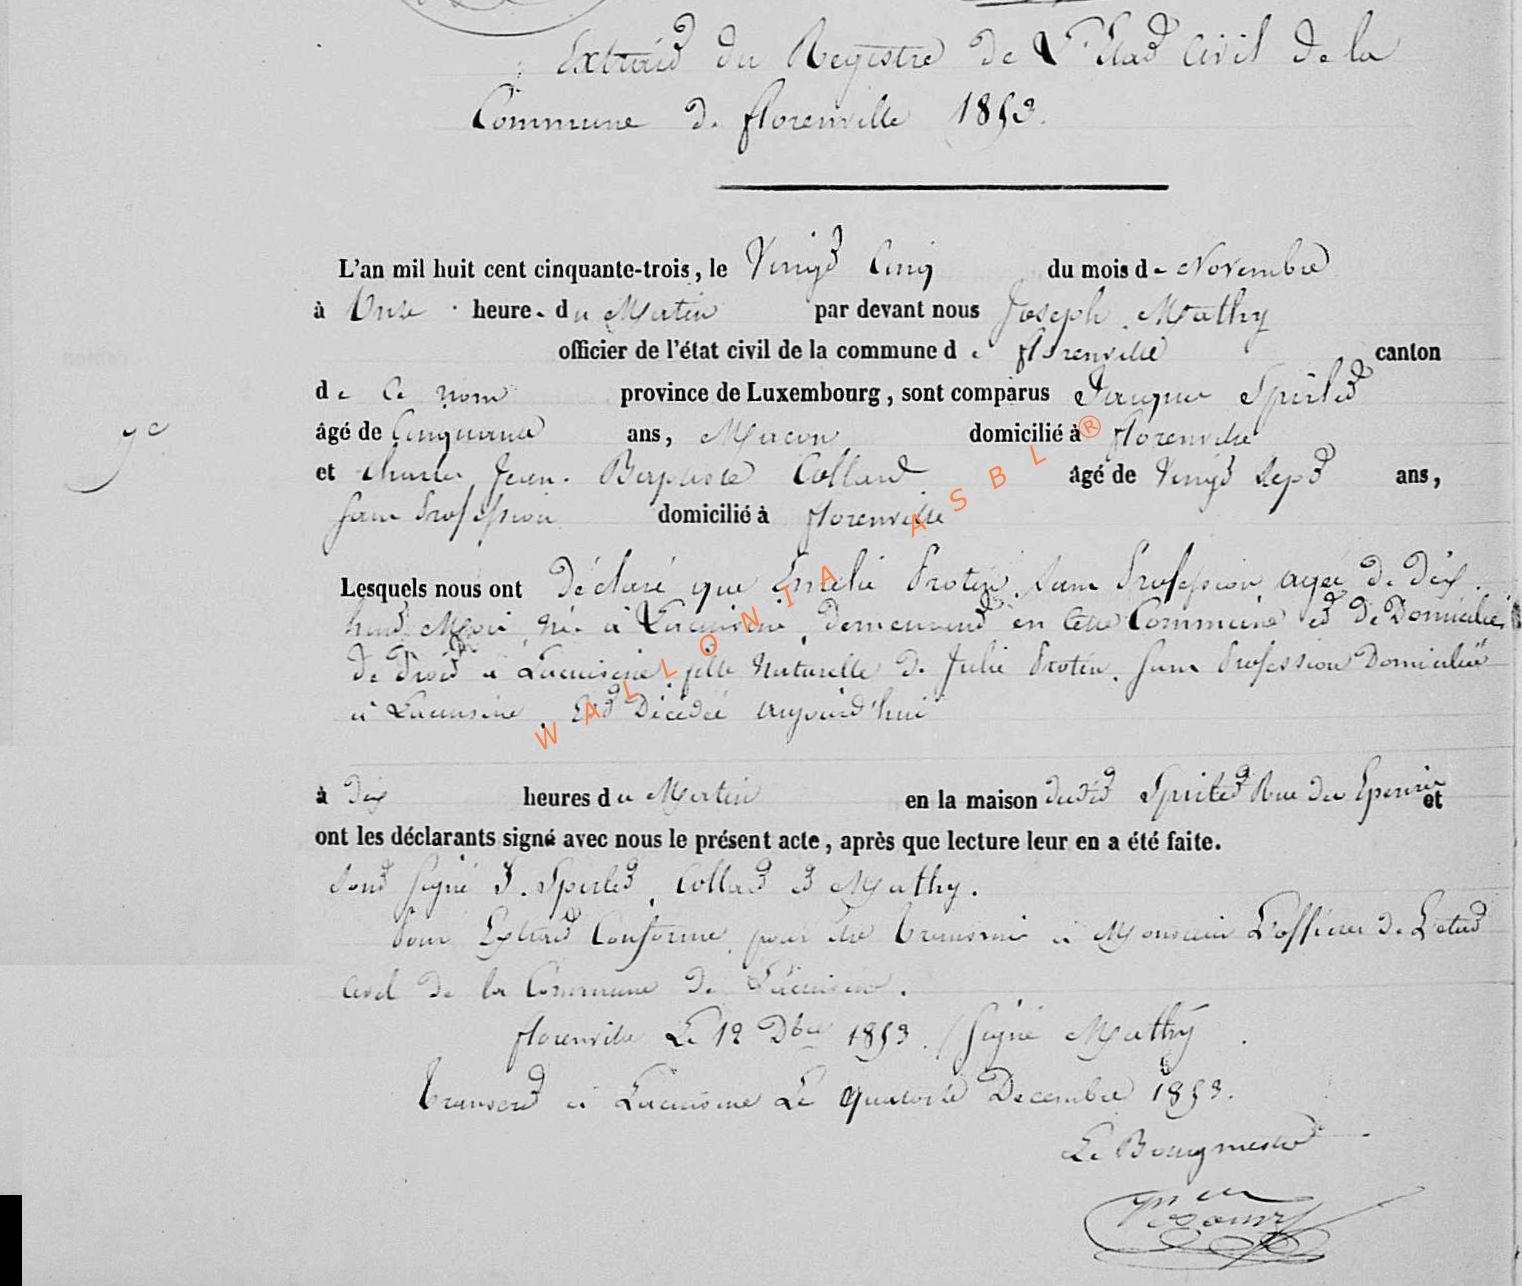 Extrait du Registre de L'Etat Civil de la
Commune de florenville 1853.
L'an mil huit cent cinquante-trois, le Vingt Cinq du mois de Novembre
à Onze heure. du Matin par devant nous Joseph Mathy
officier de l'état civil de la commune de florenville canton
de Ce nom province de Luxembourg, sont comparus Jacques Spirlet
âgé de Cinquante ans, Macon domicilié à florenville
et Charles Jean. Baptiste Collard âgé de Vingt Sept ans,
Sans Profession domicilié à florenville
Lesquels nous ont Déclaré que Emelie Protin. Sans Profession agée de dix
huit Mois, née à Lacuisine, demeurant en Cette Commune et de Domicile
de Droit à Lacuisine, fille Naturelle de Julie Protin. Sans Profession Domiciliée
à Lacuisine. Est Décédée aujourd'hui
à dix heures du Matin en la maison dudit Spirlet Rue et
ont les déclarants signé avec nous le présent acte, après que lecture leur en a été faite.
Sont Signé J. Spirlet, Collard et Mathy.
Pour Extrait Conforme, pour être transmis à Monsieur L'officier de L'etat
Civil de la Commune de Lacuisine.
florenville Le 12 Dbre 1853. / Signé Mathy
transcrit à Lacuisine Le quatorze Decembre 1853.
Le Bourgmestre
WALLONIA ASBL ®